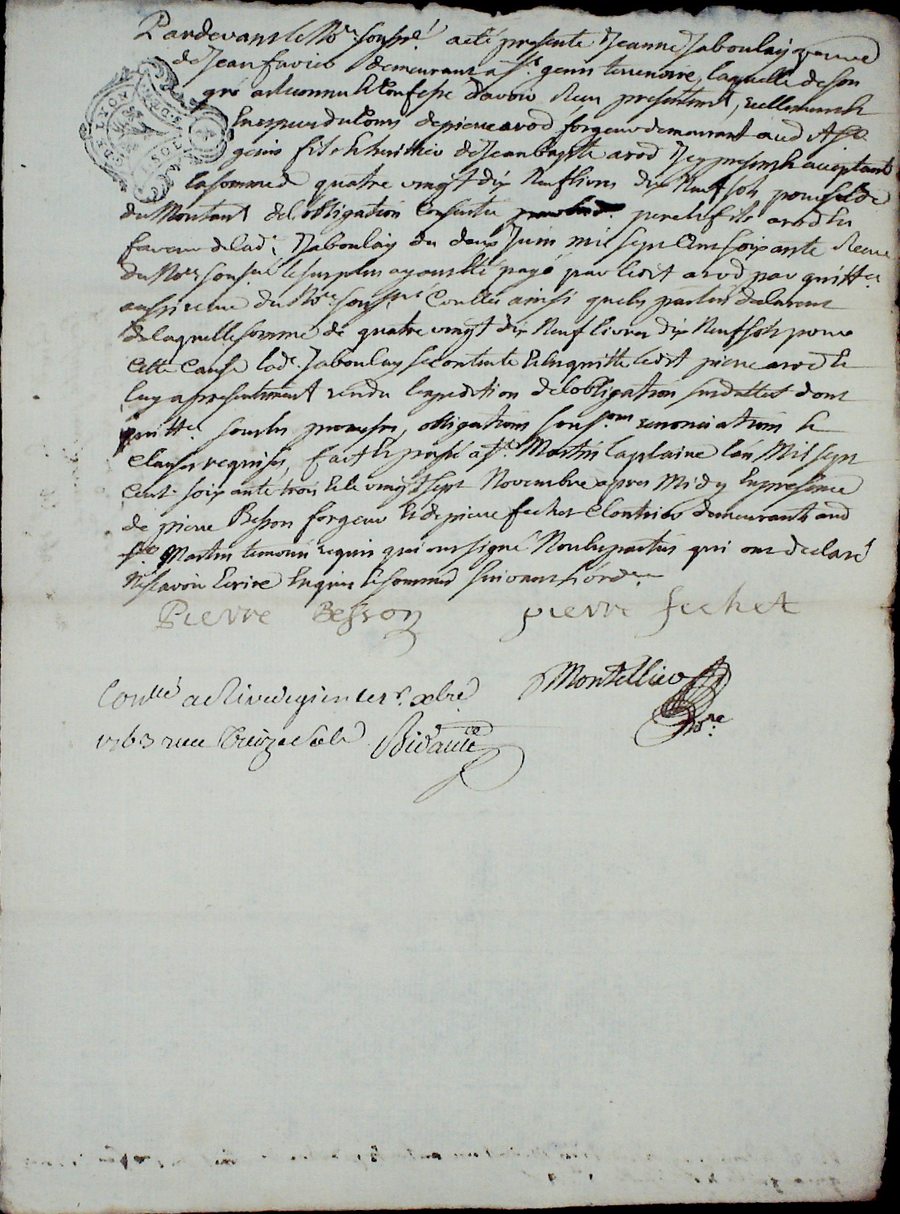 Pardevant le No.re sousg.é acté presente Jeanne Jaboulay veuve
de Jean favier demeurant a S.t genis terrenoire, laquelle de son
gré a reconnu et Confessé d'avoir Receu presentement, reellement et
En especes du Cours de pierre arod forgeur demeurant aud
genis fils et heritier de Jean baptiste arod Icy present et acceptant
la somme de quatre vingt dix Neuf livres dix Neuf sols pour solde
du Montant de l'obligation Consentie par led. arod En
faveur de lad.e Jaboulay du deux Juin mil sept Cent soixante Receue
du No.re sous.né le surplus ayant été payé par led.t arod par quitt.ce
aussi receue du No.re sous.né Conllée ainsi que les parties declarent
de laquelle somme de quatre vingt dix Neuf livres dix Neuf sols pour
Cette Cause lad.e Jaboulay se contente et En quitte led.t pierre arod et
luy a presentement rendu l'expedition de l'obligation susdattée dont
quitt.e sous les promesses, obligations renonciations et
Clauses requises, fait et passé a S.t Martin la plaine l'an Mil sept
Cent soixante trois et le vingt sept Novembre apres Midy En presence
de pierre Besson forgeur et de pierre fechet Cloutier demeurants aud
S.t Martin temoins requis qui ont signé Non les parties qui ont declaré
Ne scavoir Ecrire Enquis et sommés suivant l'ord.ce
Pierre Besson pierre fechet
Conllé a Rivedegier le 1er xbre Montellier
1763 receu treize sols Bidault No.re